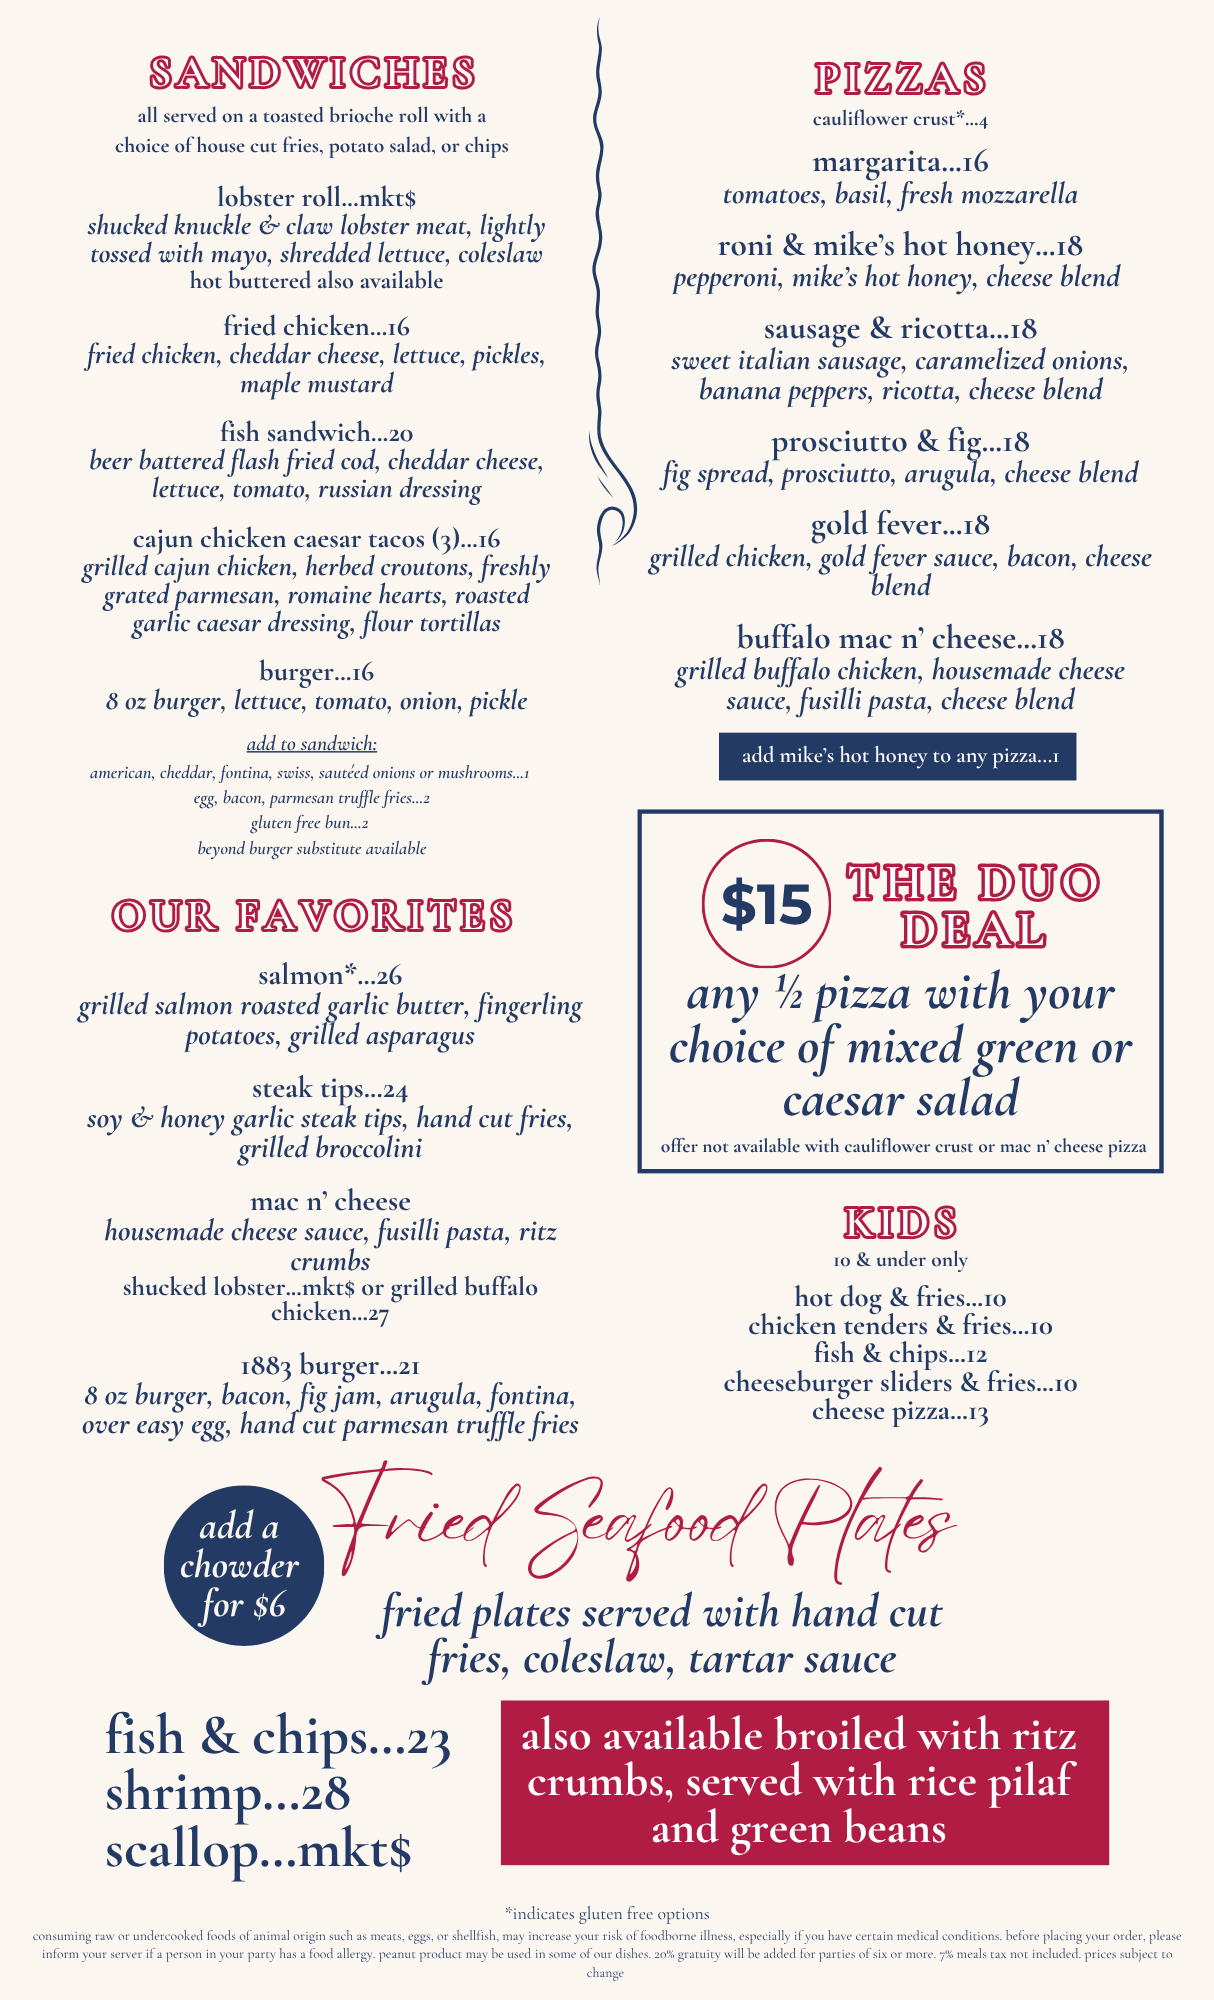 SANDWICHES
all served on a toasted brioche roll with a
choice of house cut fries, potato salad, or chips
lobster roll...mkt$
shucked knuckle & claw lobster meat, lightly
tossed with mayo, shredded lettuce, coleslaw
hot buttered also available
fried chicken...16
fried chicken, cheddar cheese, lettuce, pickles,
maple mustard
fish sandwich...20
beer battered flash fried cod, cheddar cheese,
lettuce, tomato, russian dressing
cajun chicken caesar tacos (3)...16
grilled cajun chicken, herbed croutons, freshly
grated parmesan, romaine hearts, roasted
garlic caesar dressing, flour tortillas
burger...16
8 oz burger, lettuce, tomato, onion, pickle
add to sandwich:
american, cheddar, fontina, swiss, sautéed onions or mushrooms...1
egg, bacon, parmesan truffle fries...2
gluten free bun...2
beyond burger substitute available
OUR FAVORITES
salmon*...26
grilled salmon roasted garlic butter, fingerling
potatoes, grilled asparagus
steak tips...24
soy & honey garlic steak tips, hand cut fries,
grilled broccolini
mac n' cheese
housemade cheese sauce, fusilli pasta, ritz
crumbs
shucked lobster...mkt$ or grilled buffalo
chicken...27
1883 burger...21
8 oz burger, bacon, fig jam, arugula, fontina,
over easy egg, hand cut parmesan truffle fries
PIZZAS
cauliflower crust*...4
margarita...16
tomatoes, basil, fresh mozzarella
roni & mike's hot honey...18
pepperoni, mike's hot honey, cheese blend
sausage & ricotta...18
sweet italian sausage, caramelized onions,
banana peppers, ricotta, cheese blend
prosciutto & fig...18
fig spread, prosciutto, arugula, cheese blend
gold fever...18
grilled chicken, gold fever sauce, bacon, cheese
blend
buffalo mac n' cheese...18
grilled buffalo chicken, housemade cheese
sauce, fusilli pasta, cheese blend
add mike's hot honey to any pizza...1
$15
THE DUO
DEAL
any ½ pizza with your
choice of mixed green or
caesar salad
offer not available with cauliflower crust or mac n' cheese pizza
KIDS
10 & under only
hot dog & fries...10
chicken tenders & fries...10
fish & chips...12
cheeseburger sliders & fries...10
cheese pizza...13
add a
chowder
for $6
Fried Seafood Plates
fried plates served with hand cut
fries, coleslaw, tartar sauce
fish & chips...23
shrimp...28
scallop...mkt$
also available broiled with ritz
crumbs, served with rice pilaf
and green beans
*indicates gluten free options
consuming raw or undercooked foods of animal origin such as meats, eggs, or shellfish, may increase your risk of foodborne illness, especially if you have certain medical conditions. before placing your order, please
inform your server if a person in your party has a food allergy. peanut product may be used in some of our dishes. 20% gratuity will be added for parties of six or more. 7% meals tax not included. prices subject to
change